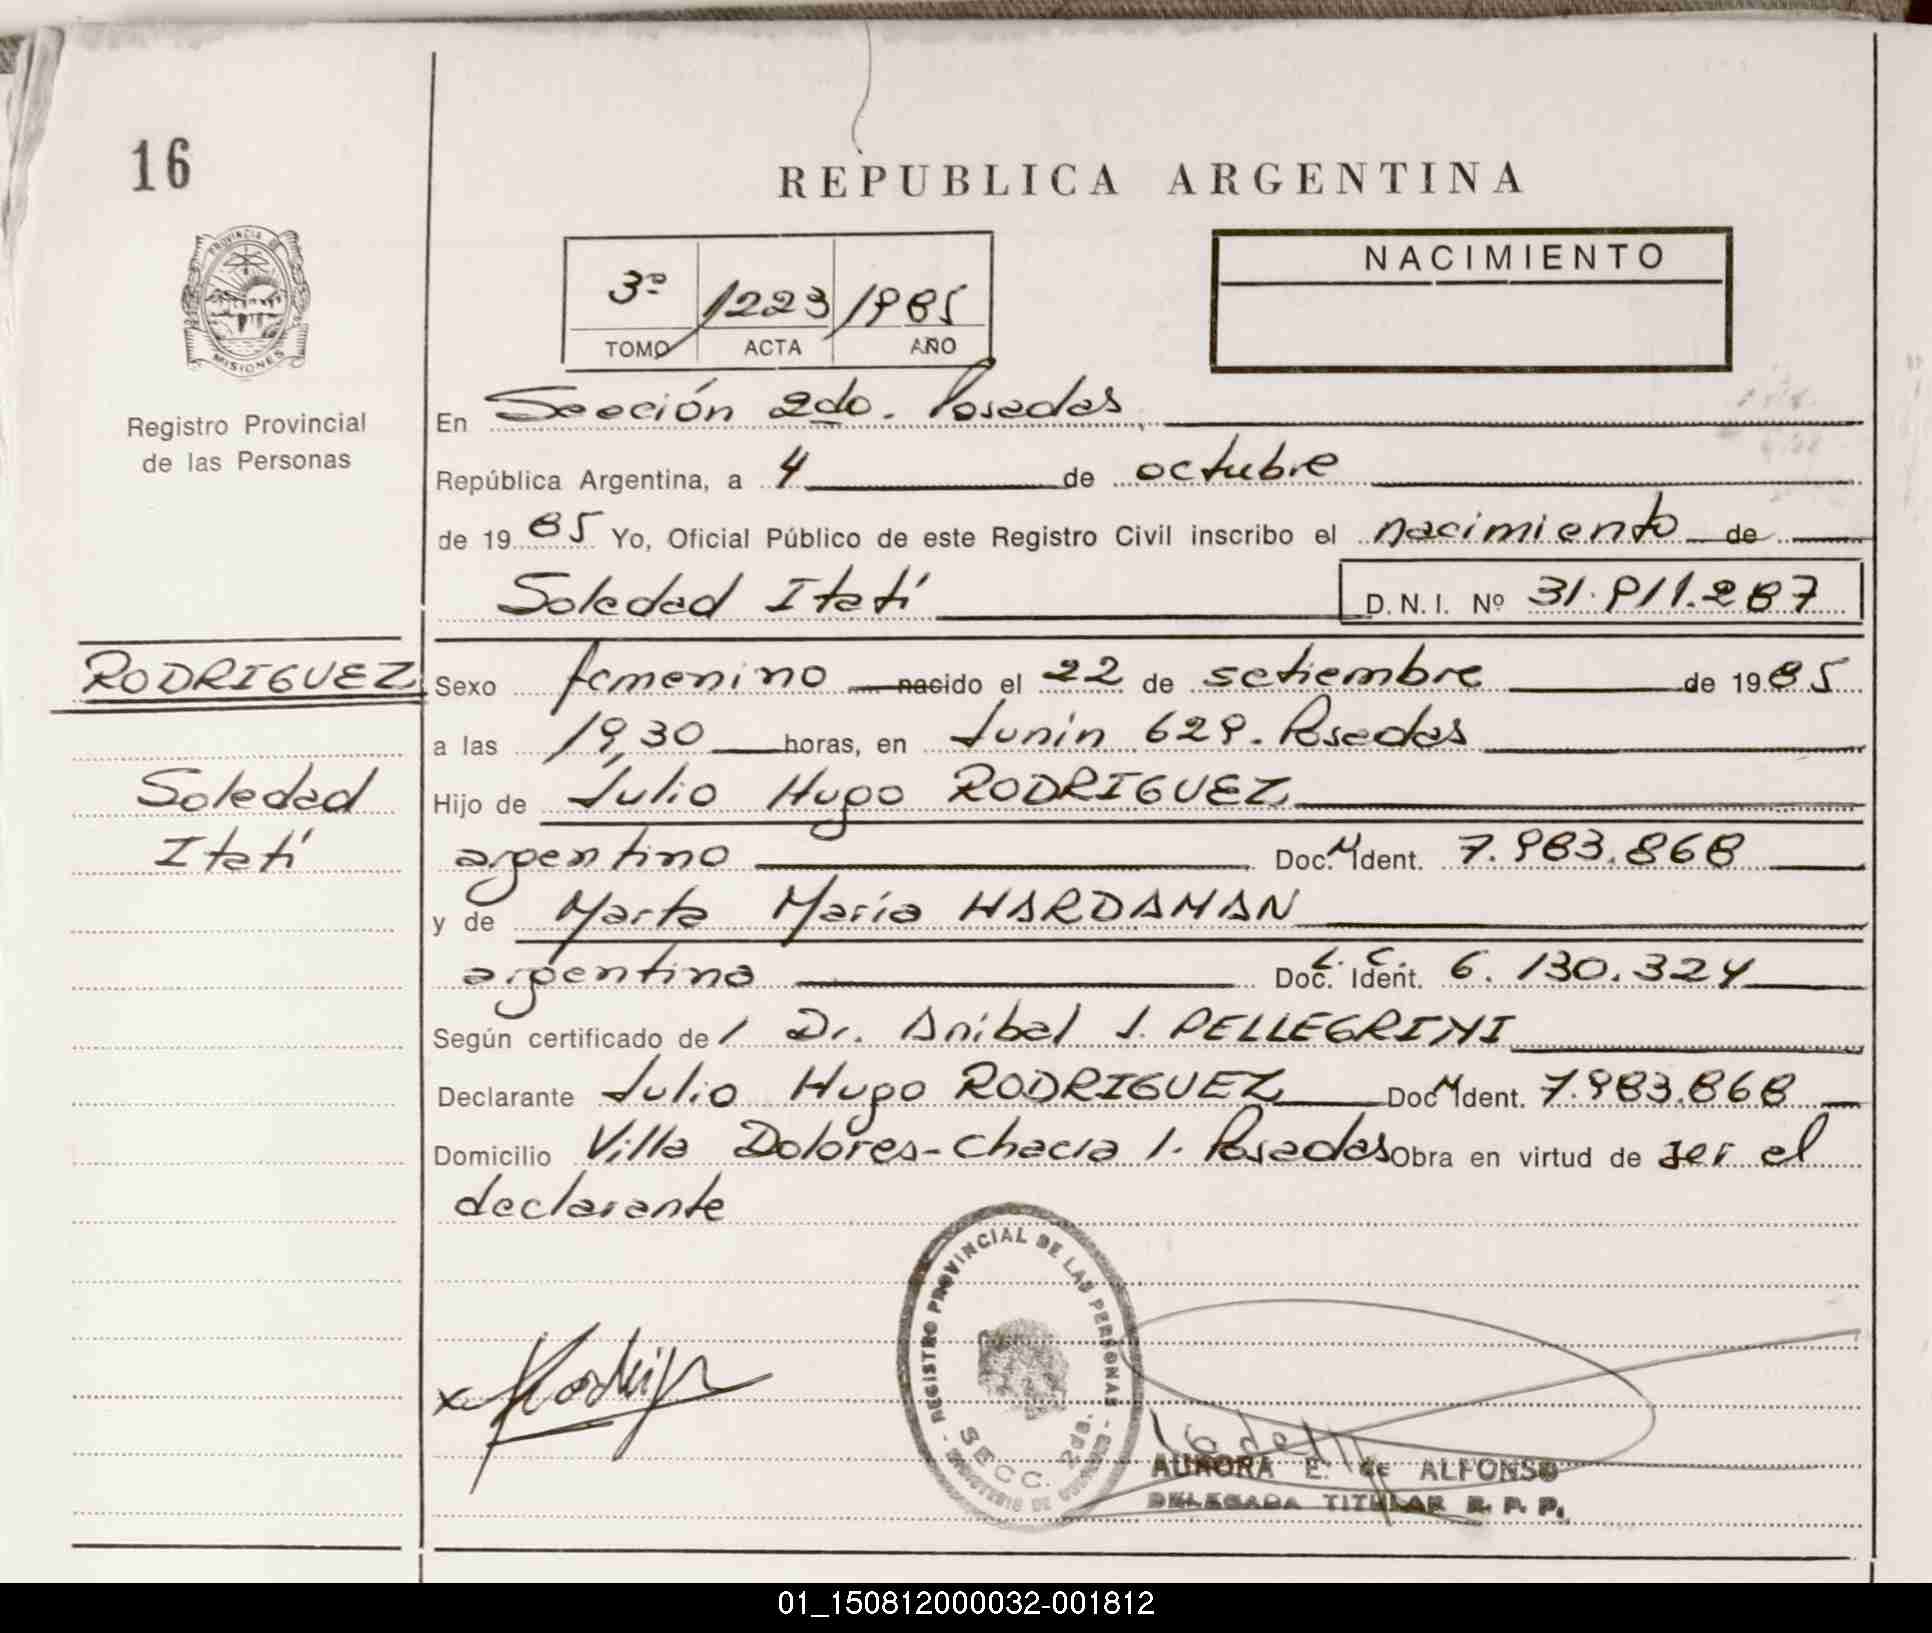 16
REPUBLICA ARGENTINA
PROVINCIA DE
MISIONES
Registro Provincial
de las Personas
3º 1223 1985
TOMO ACTA AÑO
NACIMIENTO
En Sección 2do. Posadas
República Argentina, a 4 de octubre
de 1985 Yo, Oficial Público de este Registro Civil inscribo el nacimiento de
Soledad Itatí D.N.I. Nº 31.911.287
RODRIGUEZ
Soledad
Itatí
Sexo femenino nacido el 22 de setiembre de 1985
a las 19,30 horas, en Junín 629. Posadas
Hijo de Julio Hugo RODRIGUEZ
argentino Doc. M Ident. 7.983.868
y de Marta María HARDAMAN
argentina Doc. L. C. Ident. 6.130.324
Según certificado de / Dr. Anibal J. PELLEGRINI
Declarante Julio Hugo RODRIGUEZ Doc M Ident. 7.983.868
Domicilio Villa Dolores-Chacra 1. Posadas Obra en virtud de ser el
declarante
REGISTRO PROVINCIAL DE LAS PERSONAS
SECC. 2da.
AURORA E. de ALFONSO
DELEGADA TITULAR R. P. P.
01_150812000032-001812